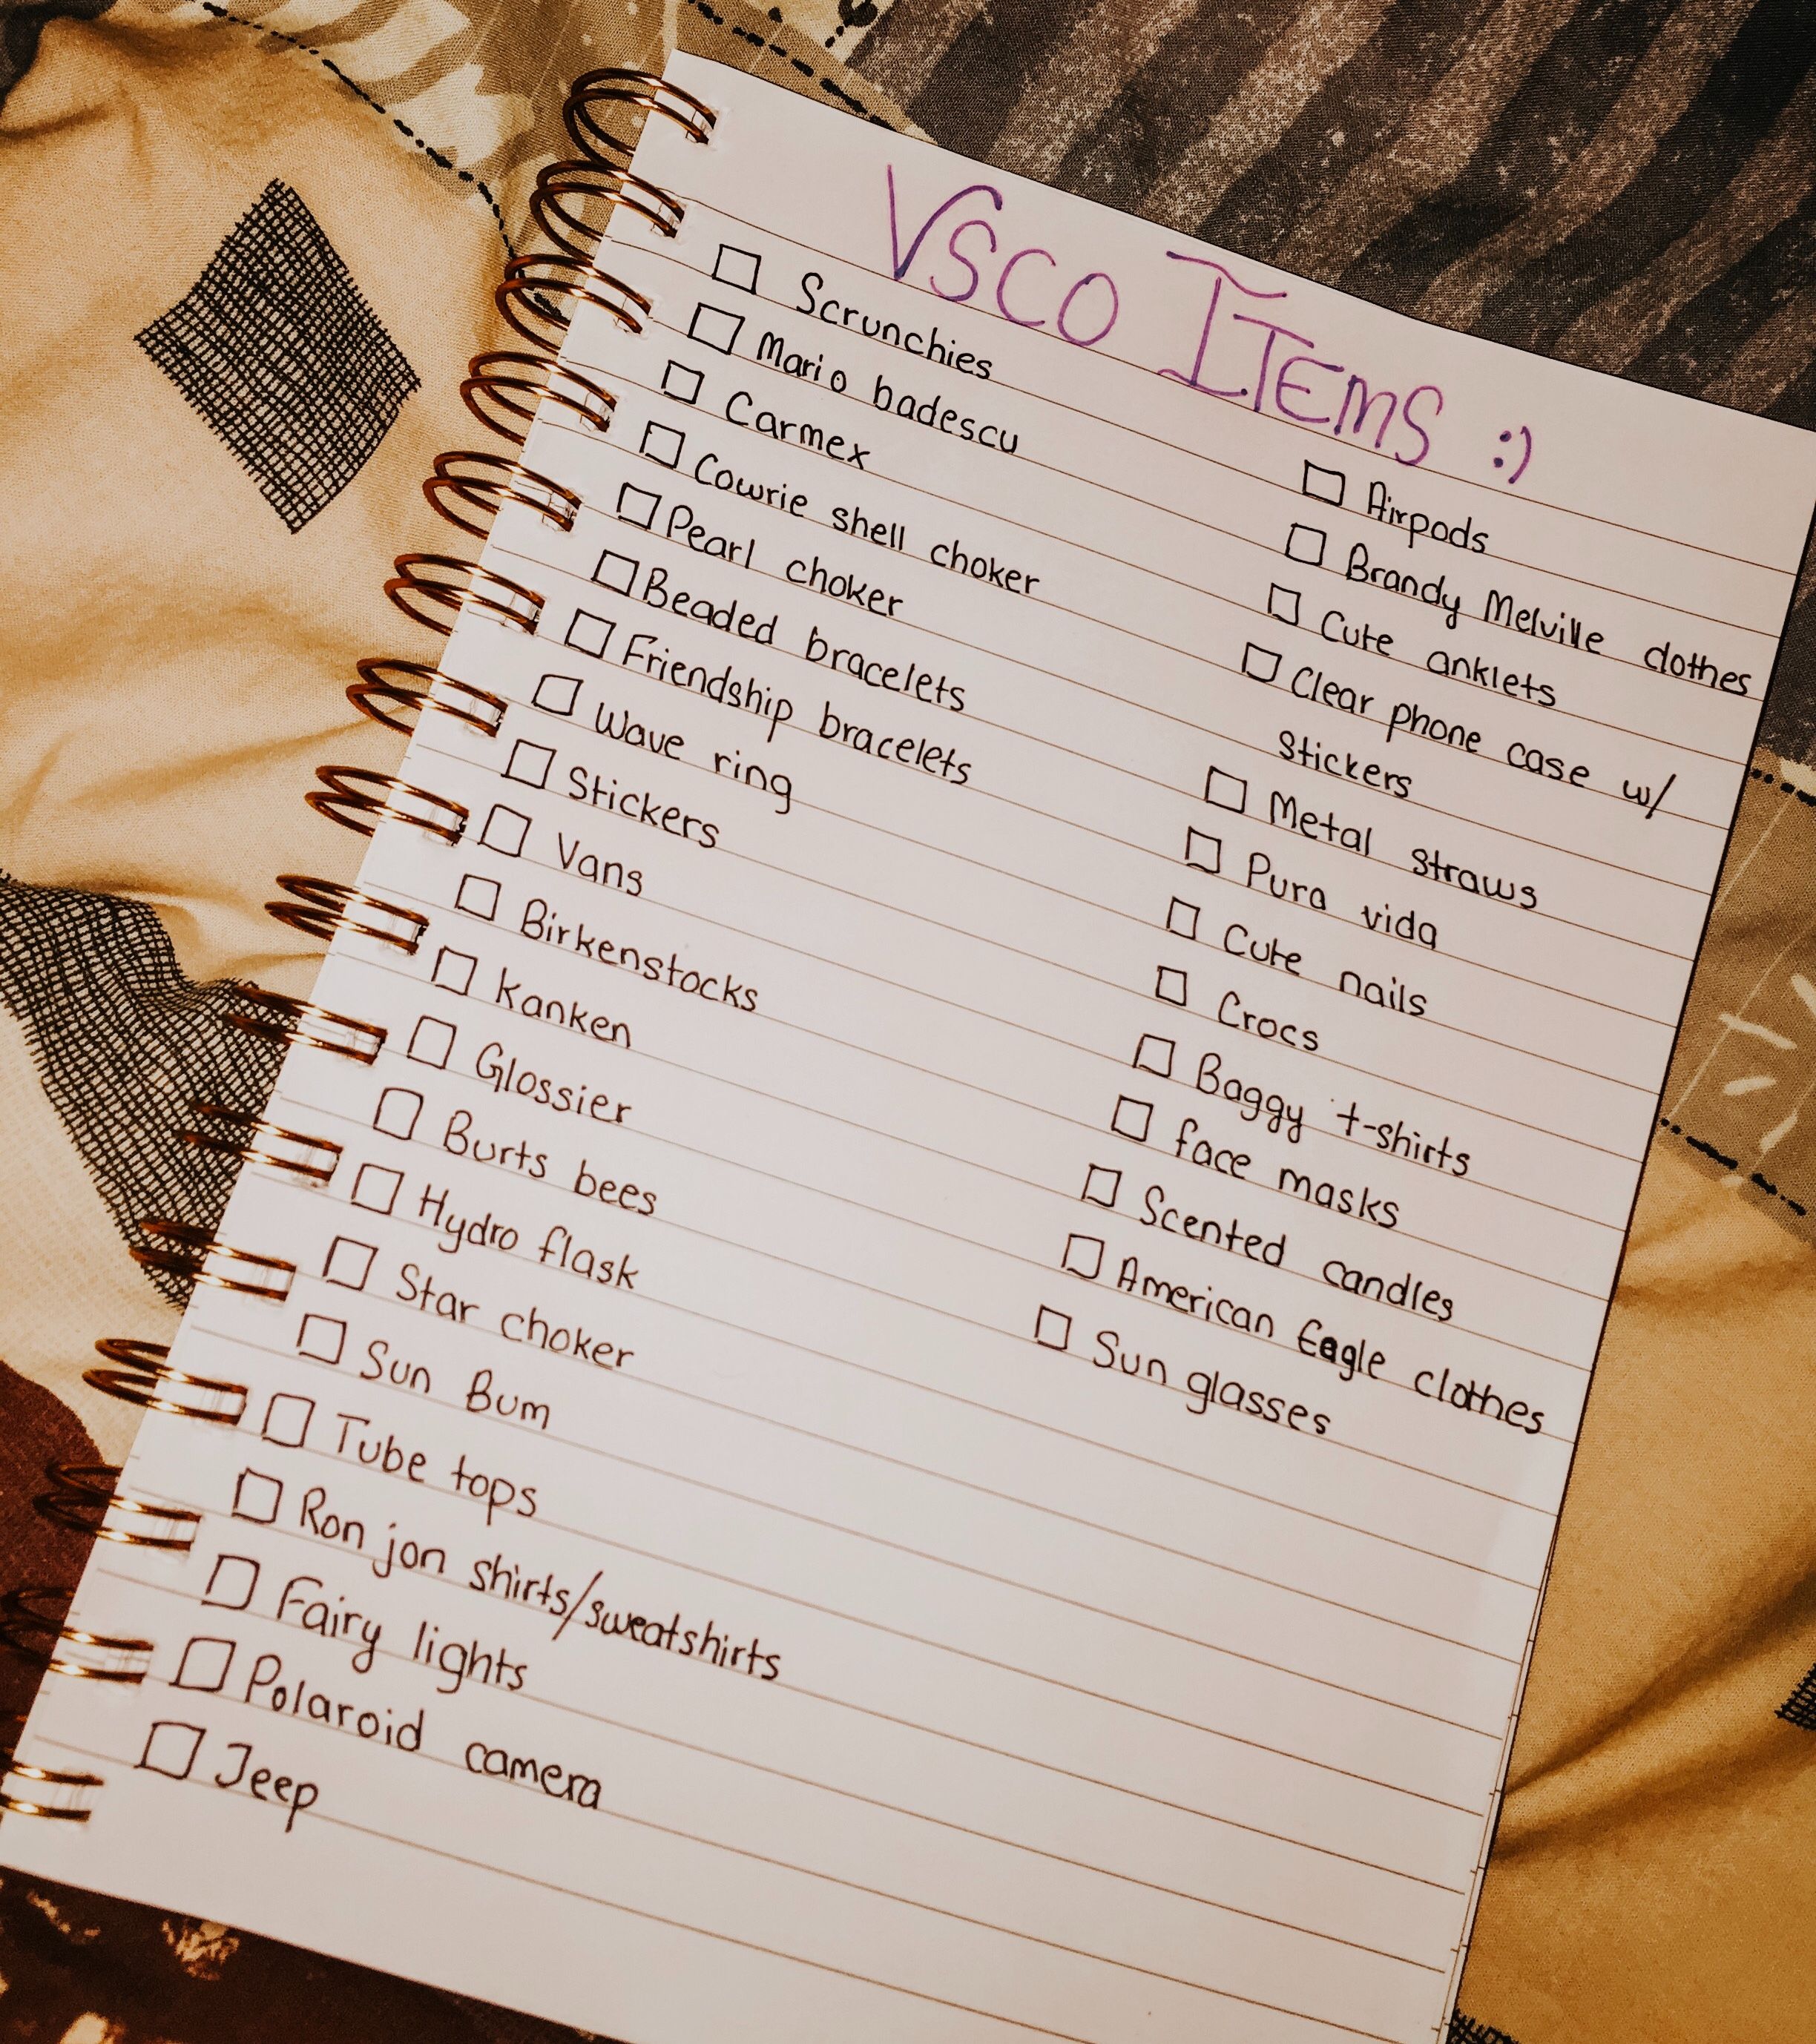 VSCO ITEMS :)
Scrunchies
Mario badescu
Carmex
Cowrie shell choker
Pearl choker
Beaded bracelets
Friendship bracelets
Wave ring
Stickers
Vans
Birkenstocks
Kanken
Glossier
Burts bees
Hydro flask
Star choker
Sun Bum
Tube tops
Ron jon shirts/sweatshirts
Fairy lights
Polaroid camera
Jeep
Airpods
Brandy Melville clothes
Cute anklets
Clear phone case w/
Stickers
Metal straws
Pura vida
Cute nails
Crocs
Baggy t-shirts
face masks
Scented candles
American Eagle clothes
Sun glasses